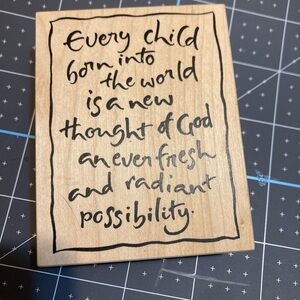 Every child
born into
the world
is a new
thought of God
an ever fresh
and radiant
possibility.